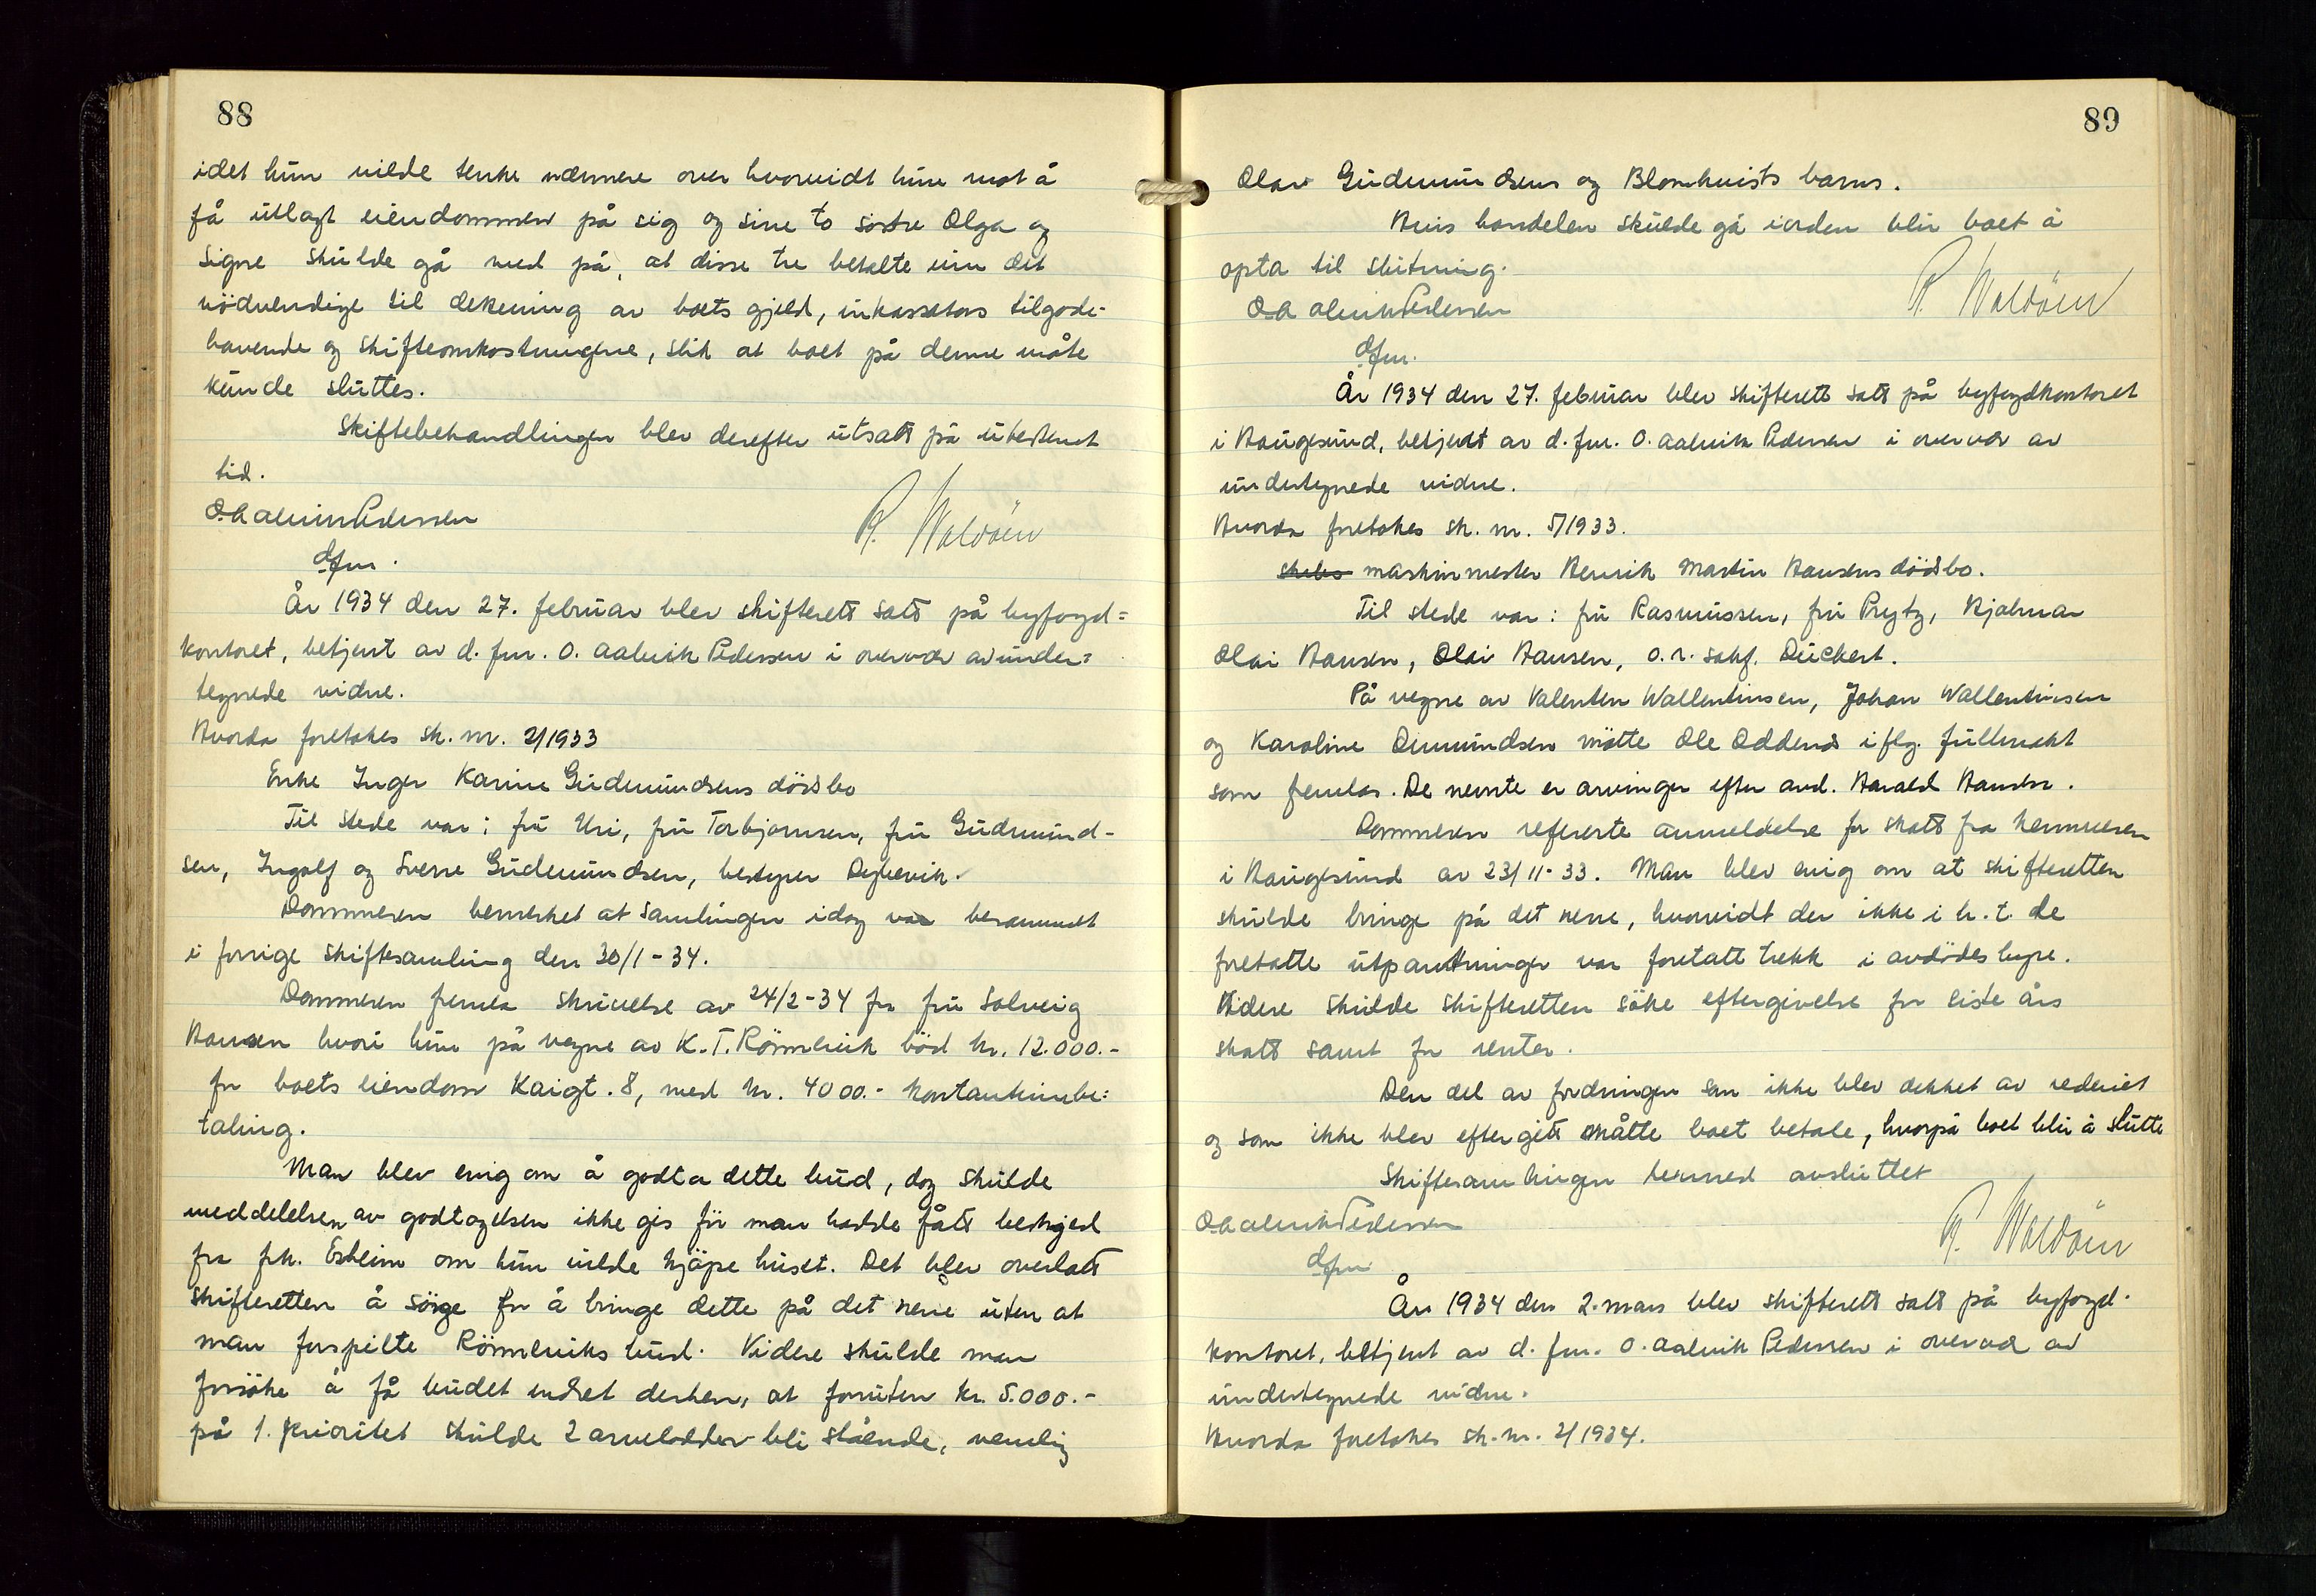 88
idet hun vilde tenke nærmere over hvorvidt hun mot å
få utlagt eiendommen på sig og sine to søstre Olga og
Signe skulde gå med på, at disse tre betalte inn det
nödvendige til dekening av boets gjeld, inkassators tilgode-
havende og skifteomkostningene, slik at boet på denne måte
kunde sluttes.
Skiftebehandlingen blev derefter utsatt på ubestemt
tid.
O. Aalvik Pedersen
R. Waldöen
dfm.
År 1934 den 27. februar blev skifterett satt på byfogd=
kontoret, betjent av d. fm. O. Aalvik Pedersen i overvær av under=
tegnede vidne.
Hvorda foretokes sk. nr. 2/1933
Enke Inger Karine Gudmundsens dödsbo
Til stede var: fru Uri, fru Torbjornsen, fru Gudmund-
sen, Ingolf og Sverre Gudmundsen, bestyrer Dybevik.
Dommeren bemerket at samlingen idag var berammet
i forrige skiftesamling den 30/1-34.
Dommeren femla skrivelse av 24/2-34 fra fru Solveig
Hansen hvori hun på vegne av K. T. Römmervik böd kr. 12.000.-
for boets eiendom Kaigt. 8, med kr. 4000.- kontantinnbe=
taling.
Man blev enig om å godta dette bud, dog skulde
meddelelsen av godtagelsen ikke gis för man hadde fått beskjed
fra frk. Erheim om hun vilde kjöpe huset. Det blev overlatt
skifteretten å sörge for å bringe dette på det rene uten at
man forspilte Römmerviks bud. Videre skulde man
forsöke å få budet endret derhen, at foruten kr. 5.000.-
på 1. prioritet skulde 2 arvelodder bli stående, nemlig
89
Olav Gudmundsens og Blomkvists barns.
Hvis handelen skulde gå iorden blir boet å
opta til slutning.
O. Aalvik Pedersen
R. Waldöen
dfm.
År 1934 den 27. februar blev skifterett satt på byfogdkontoret
i Haugesund, betjent av d. fm. O. Aalvik Pedersen i overvær av
undertegnede vidne.
Hvorda foretokes sk. nr. 5/1933.
maskinmester Henrik Martin Hansens dödsbo.
Til stede var: fru Rasmussen, fru Prytz, Hjalmar
Olai Hansen, Olai Hansen, o.r. sakf. Duckert.
På vegne av Valenten Wallentinsen, Johan Wallentinsen
og Karoline Amundsen mötte Ole Oddenes iflg. fullmakt
som femlas. De nevnte er arvinger efter avd. Harald Hansen.
Dommeren refererte anmeldelse for skatt fra kemneren
i Haugesund av 23/11-33. Man blev enig om at skifteretten
skulde bringe på det rene, hvorvidt der ikke i h. t. de
foretatte utpantninger var foretatt trekk i avdödes hyre.
Videre skulde skifteretten söke eftergivelse for siste års
skatt samt for renter.
Den del av fordringen som ikke blev dekket av rederiet
og som ikke blev eftergitt måtte boet betale, hvorpå boet blir å slutte
Skiftesamlingen hermed avsluttet
O. Aalvik Pedersen
R. Waldöen
dfm
År 1934 den 2. mars blev skifterett satt på byfogd-
kontoret, betjent av d. fm. O. Aalvik Pedersen i overvær av
undertegnede vidne.
Hvorda foretokes sk. nr. 2/1934.